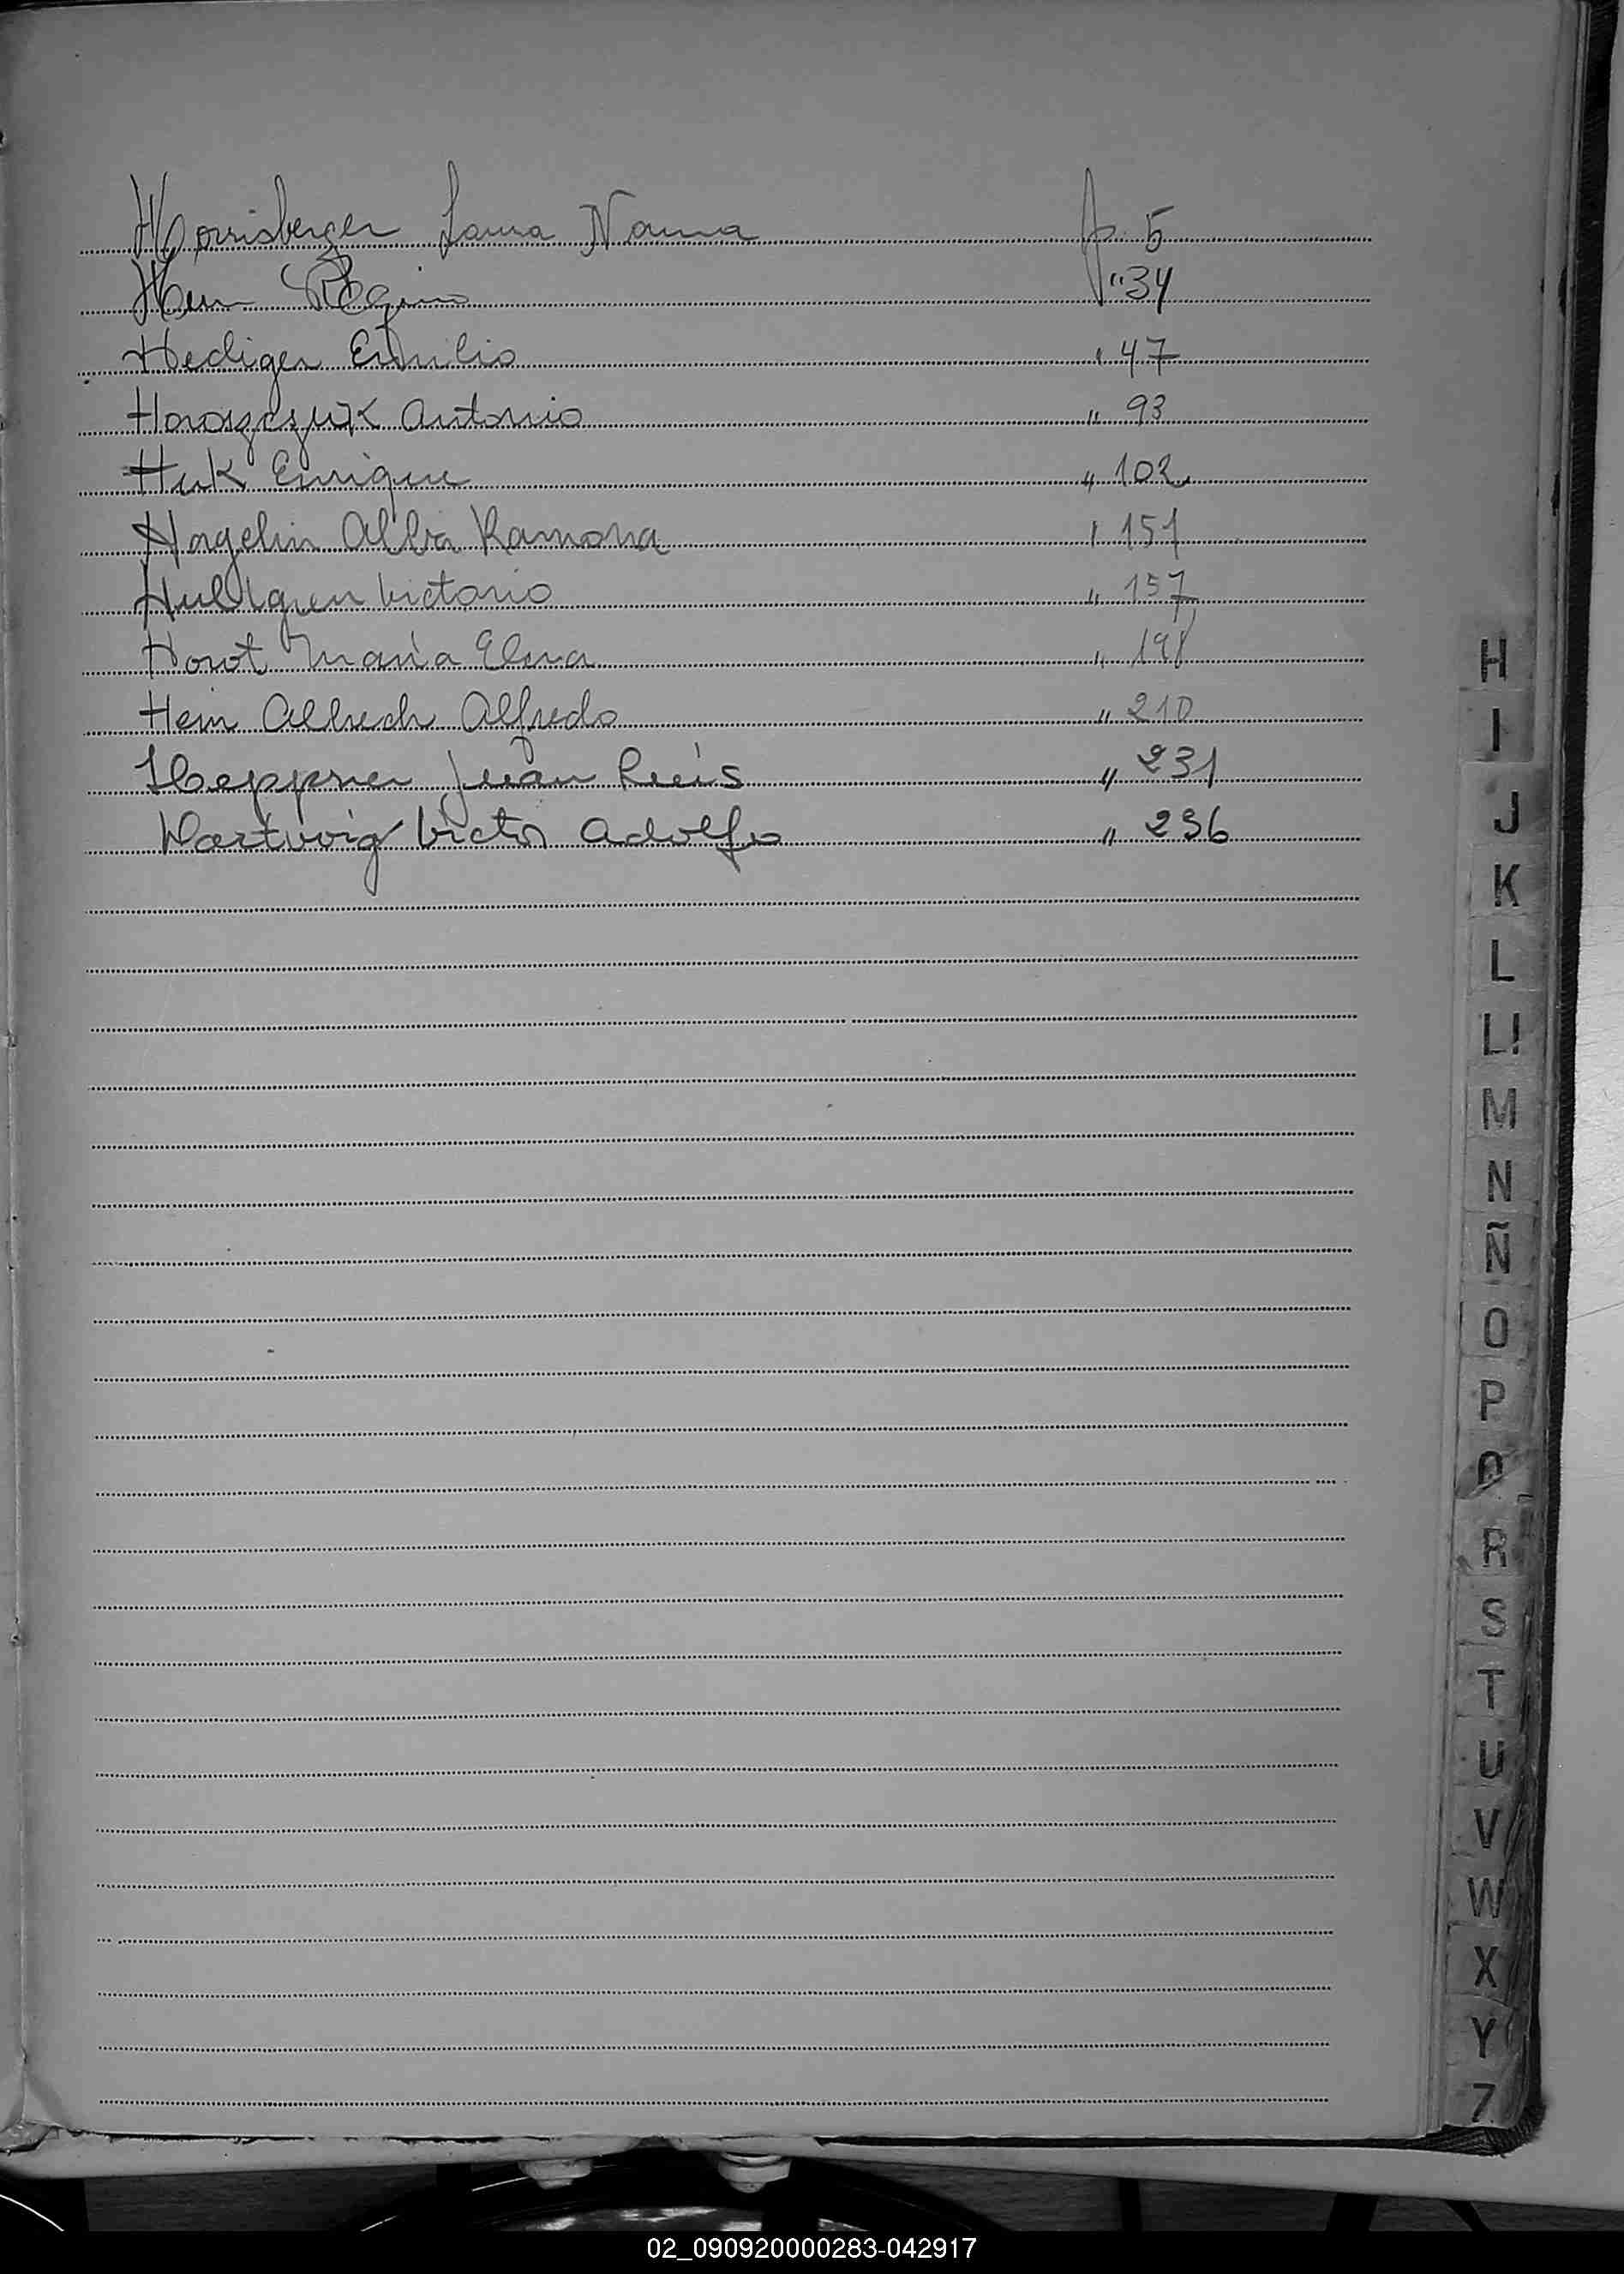 Horrisberger Laura Norma f. 5
Hein Regino " 34
Hediger Emilio " 47
Horoszczuk Antonio " 93
Huk Enrique " 102
Hagelin Alba Ramona " 151
Huldgren Victorio " 157
Horot María Elena " 198
Hein Albrech Alfredo " 210
Heppner Juan Luis " 231
Hartwig Victor Adolfo " 236
H
I
J
K
L
Ll
M
N
Ñ
O
P
Q
R
S
T
U
V
W
X
Y
Z
02_090920000283-042917